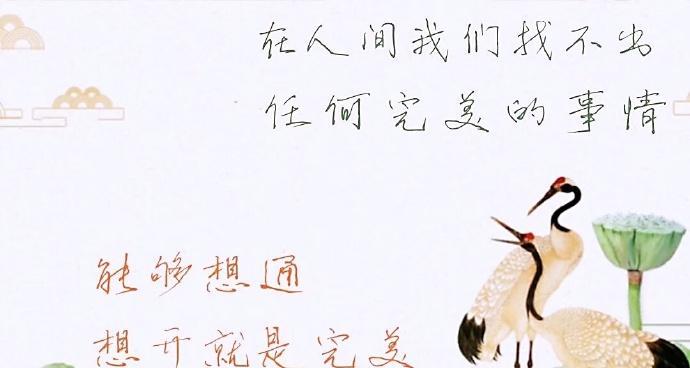 在人间我们找不出
任何完美的事情
能够想通
想开就是完美